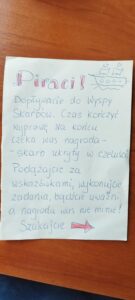 Piraci!
Dopłynęliście do Wyspy
Skarbów. Czas kończyć
wyprawę. Na końcu
czeka was nagroda-
- skarb ukryty w czeluści
Podążajcie za
wskazówkami, wykonujcie
zadania, bądźcie uważni
a nagroda was nie minie!
Szukajcie